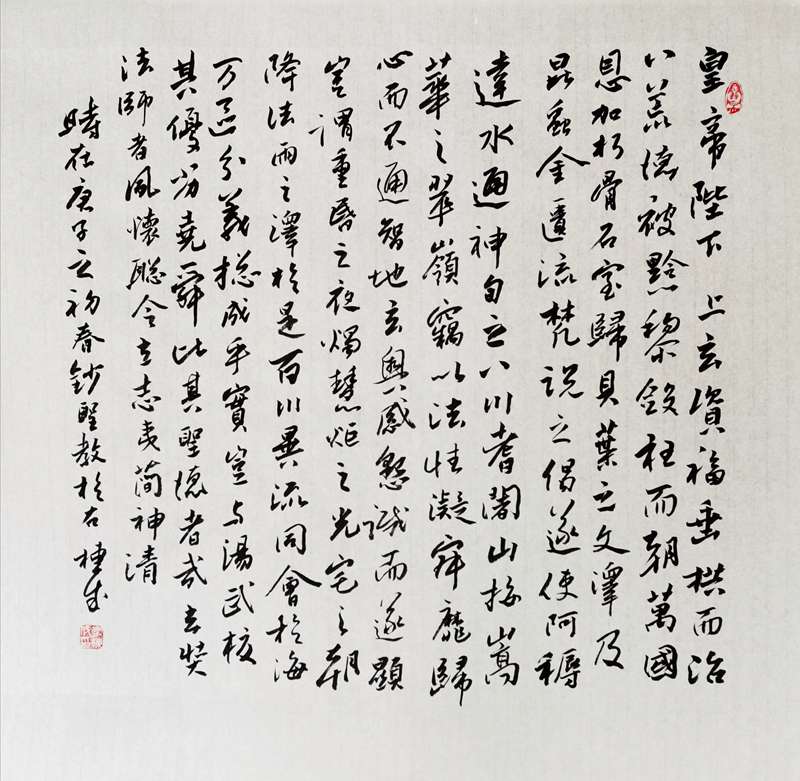 皇帝陛下上玄資福垂拱而治
八荒德被黔黎斂衽而朝萬國
恩加朽骨石室歸貝葉之文澤及
昆蟲金匱流梵說之偈遂使阿耨
達水通神甸之八川耆闍山接嵩
華之翠嶺竊以法性凝寂靡歸
心而不通智地玄奧感懇誠而遂顯
豈謂重昏之夜燭慧炬之光宅之朝
降法雨之澤於是百川異流同會於海
万區分義總成乎實豈与湯武校
其優劣堯舜比其聖德者哉玄奘
法師者夙懷聰令立志夷簡神清
時在庚子之初春鈔聖教於